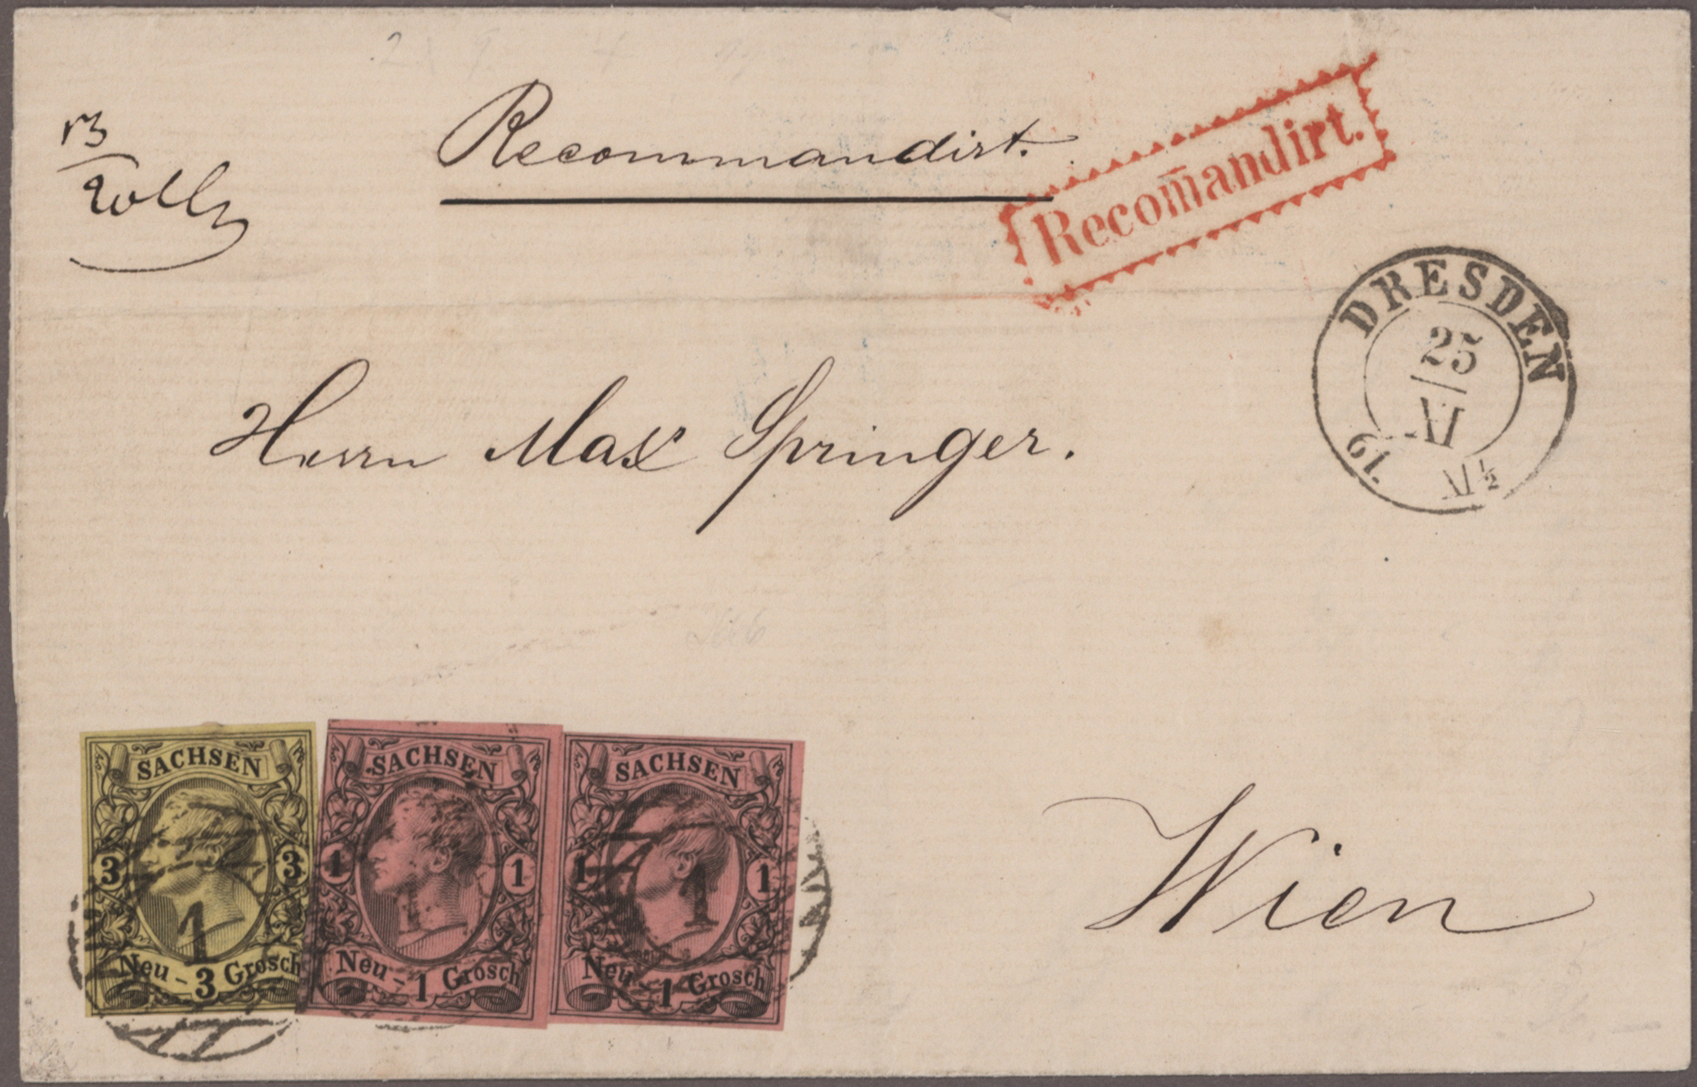 Recommandirt.
Recom̅andirt.
DRESDEN
25
XI
61.
XI½
Herrn Max Springer.
Wien
SACHSEN
3 3
1
Neu-3 Grosch
SACHSEN
1 1
1
Neu-1 Grosch
SACHSEN
1 1
1
Neu-1 Grosch